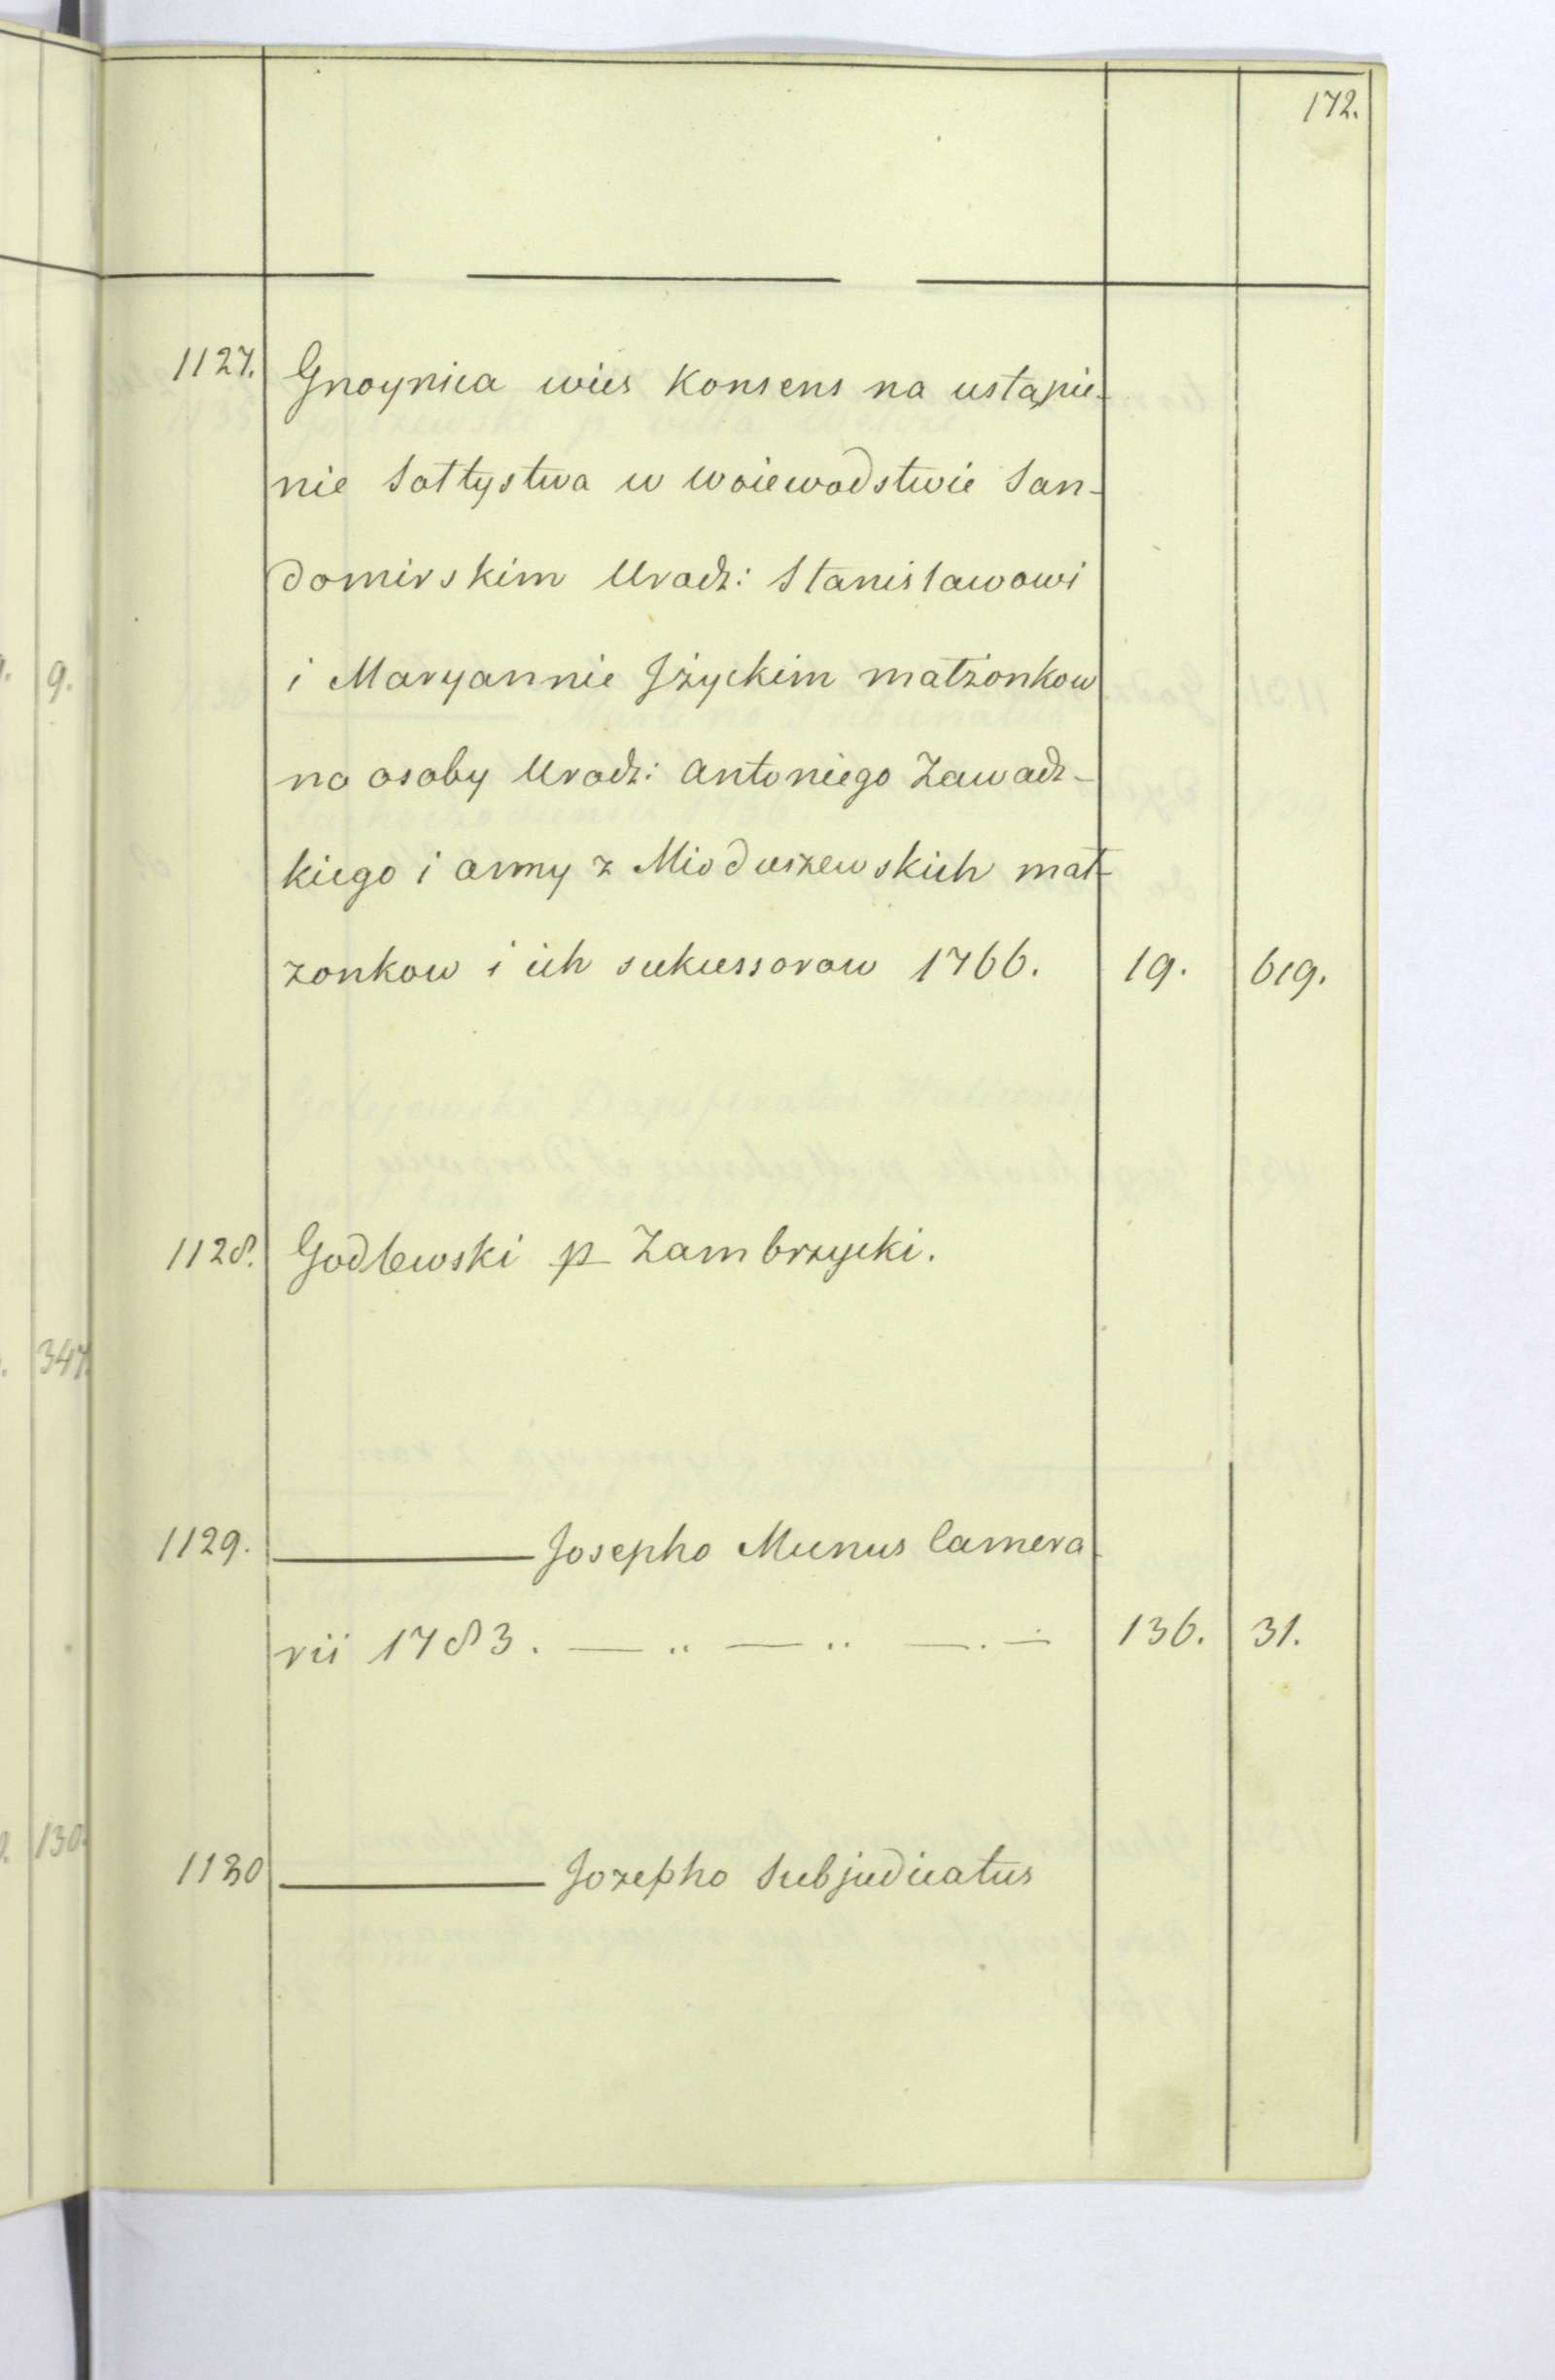 172.
1127. Gnoynica wies Konsens na ustąpie-
nie Sołtystwa w Woiewodstwie San-
domirskim Urodz: Stanisławowi
i Maryannie Jżyckim małżonkow
na osoby Urodz: Antoniego Zawadz-
kiego i Anny z Mioduszewskich mał-
zonkow i ich sukcessorow 1766. 19. 619.
1128. Godlewski p Zambrzycki.
1129. Josepho Munus Camera
rii 1783. — „ — „ — . — 136. 31.
1130 Jozepho Subjudicatus
9.
347.
130.